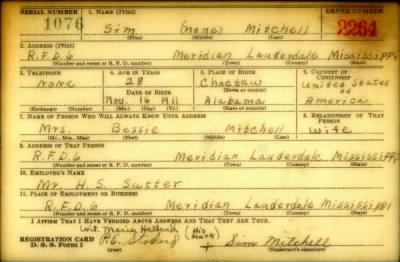 SERIAL NUMBER 1. NAME (Print) ORDER NUMBER
1076 Sim (none) Mitchell 2264
(First) (Middle) (Last)
2. ADDRESS (Print)
R.F.D.6 Meridian Lauderdale Mississippi
(Number and street or R. F. D. number) (Town) (County) (State)
3. TELEPHONE 4. AGE IN YEARS 5. PLACE OF BIRTH 6. COUNTRY OF CITIZENSHIP
none 28 Choctaw United States
DATE OF BIRTH (Town or county) of
Nov. 16 1911 Alabama America
(Exchange) (Number) (Mo.) (Day) (Yr.) (State or country)
7. NAME OF PERSON WHO WILL ALWAYS KNOW YOUR ADDRESS 8. RELATIONSHIP OF THAT PERSON
Mrs. Bessie Mitchell wife
(Mr., Mrs., Miss) (First) (Middle) (Last)
9. ADDRESS OF THAT PERSON
R.F.D.6 Meridian Lauderdale Mississippi
(Number and street or R. F. D. number) (Town) (County) (State)
10. EMPLOYER'S NAME
Mr. H. S. Sutter
11. PLACE OF EMPLOYMENT OR BUSINESS
R.F.D.6 Meridian Lauderdale Mississippi
(Number and street or R. F. D. number) (Town) (County) (State)
I AFFIRM THAT I HAVE VERIFIED ABOVE ANSWERS AND THAT THEY ARE TRUE.
Wit. (His mark)
REGISTRATION CARD Sim Mitchell
D. S. S. Form 1 (over) (Registrant's signature)